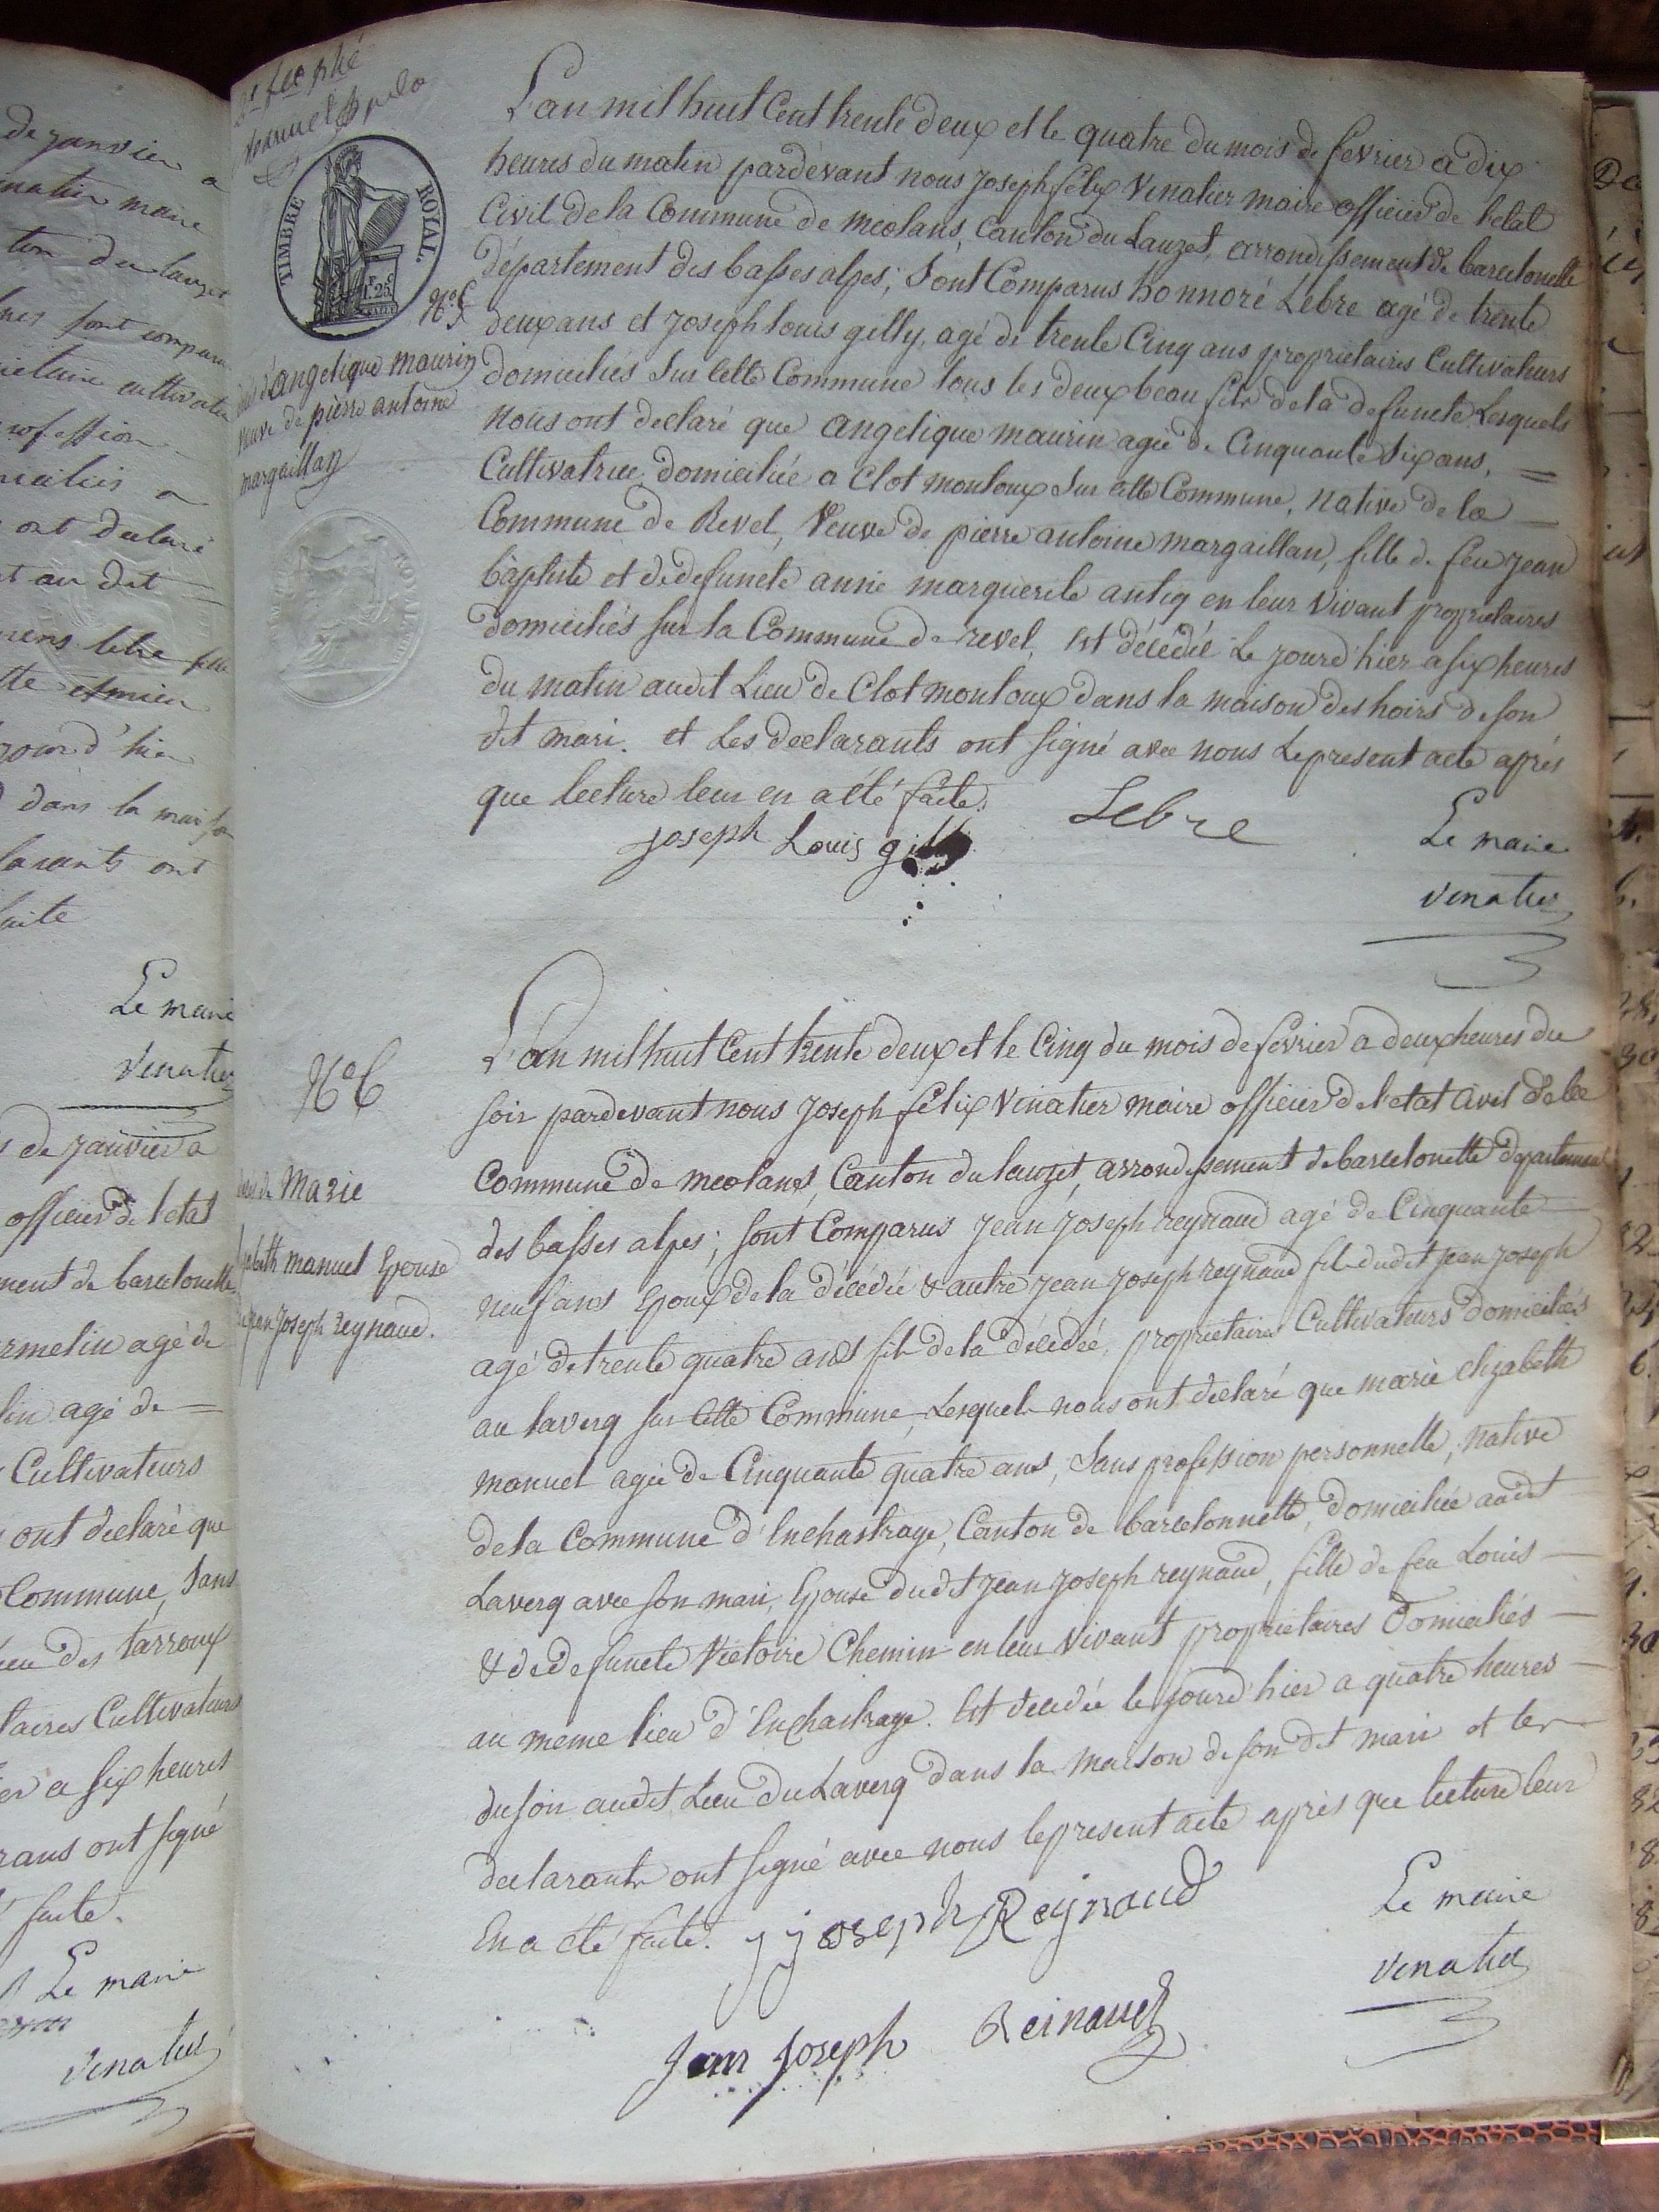 de janvier a
matin maire
ton du lauzet
sont comparu
cultivateur
profession
a
ont declaré
au dit
lebre fille
jour d'hier
dans la maison
ont
faite
Le maire
Vinatier
de janvier a
officier de l'etat
ment de barcelonette
agé de
agé de
Cultivateurs
ont declaré que
Commune, Sans
des tarroux
Cultivateurs
a six heures
ont signé
faite.
Le maire
Vinatier
TIMBRE ROYAL.
1.25
N° 5
d'angelique maurin
veuve de pierre antoine
margaillan
L'an mil huit Cent trente deux et le quatre du mois de fevrier a dix
heures du matin pardevant nous joseph felix Vinatier maire officier de l'etat
Civil de la Commune de meolans, Canton du Lauzet, arrondissement de barcelonette
département des basses alpes; Sont Comparus honnoré Lebre agé de trente
deux ans et joseph louis gilly, agé de trente Cinq ans proprietaires Cultivateurs
domiciliés Sur Cette Commune tous les deux beau fils de la defuncte Lesquels
nous ont declaré que angelique maurin agée de Cinquante Six ans,
Cultivatrice, domiciliée a Clot mouloux Sur Cette Commune, native de la
Commune de Revel, Veuve de pierre antoine margaillan, fille de feu jean
baptiste et de defuncte anne marguerite antiq en leur Vivant proprietaires
domiciliés sur la Commune de revel, est décédée Le jourd'hier a six heures
du matin audit Lieu de Clot mouloux dans la maison des hoirs de son
dit mari. et Les declarants ont signé avec nous Le present acte aprés
que lecture leur en a été faite.
joseph Louis gilly
Lebre
Le maire
Vinatier
N° 6
Marie
manuel Epouse
jean joseph reynaud.
L'an mil huit Cent trente deux et le Cinq du mois de fevrier a deux heures du
soir pardevant nous joseph félix Vinatier maire officier de l'etat Civil de la
Commune de meolans, Canton du lauzet, arrondissement de barcelonette departement
des basses alpes; sont Comparus jean joseph reynaud agé de Cinquante
neuf ans Epoux de la décédée & autre jean joseph reynaud fils dudit jean joseph
agé de trente quatre ans fils de la décédée, proprietaires Cultivateurs domiciliés
au laverq sur Cette Commune, Lesquels nous ont declaré que marie elizabeth
manuel agée de Cinquante quatre ans, Sans profession personnelle, native
de la Commune d'Enchastraye, Canton de barcelonnette, domiciliée audit
Laverq avec son mari, Epouse dudit jean joseph reynaud, fille de feu Louis
& de defuncte Victoire Chemin en leur Vivant proprietaires Domiciliés
au meme lieu d'Enchastraye. Est decedée le jourd'hier a quatre heures
du soir audit Lieu du Laverq dans la maison de son dit mari et les
declarants ont signé avec nous le present acte aprés que lecture leur
En a été faite.
j joseph Reynaud
Le maire
Vinatier
Jean Joseph Reinaud